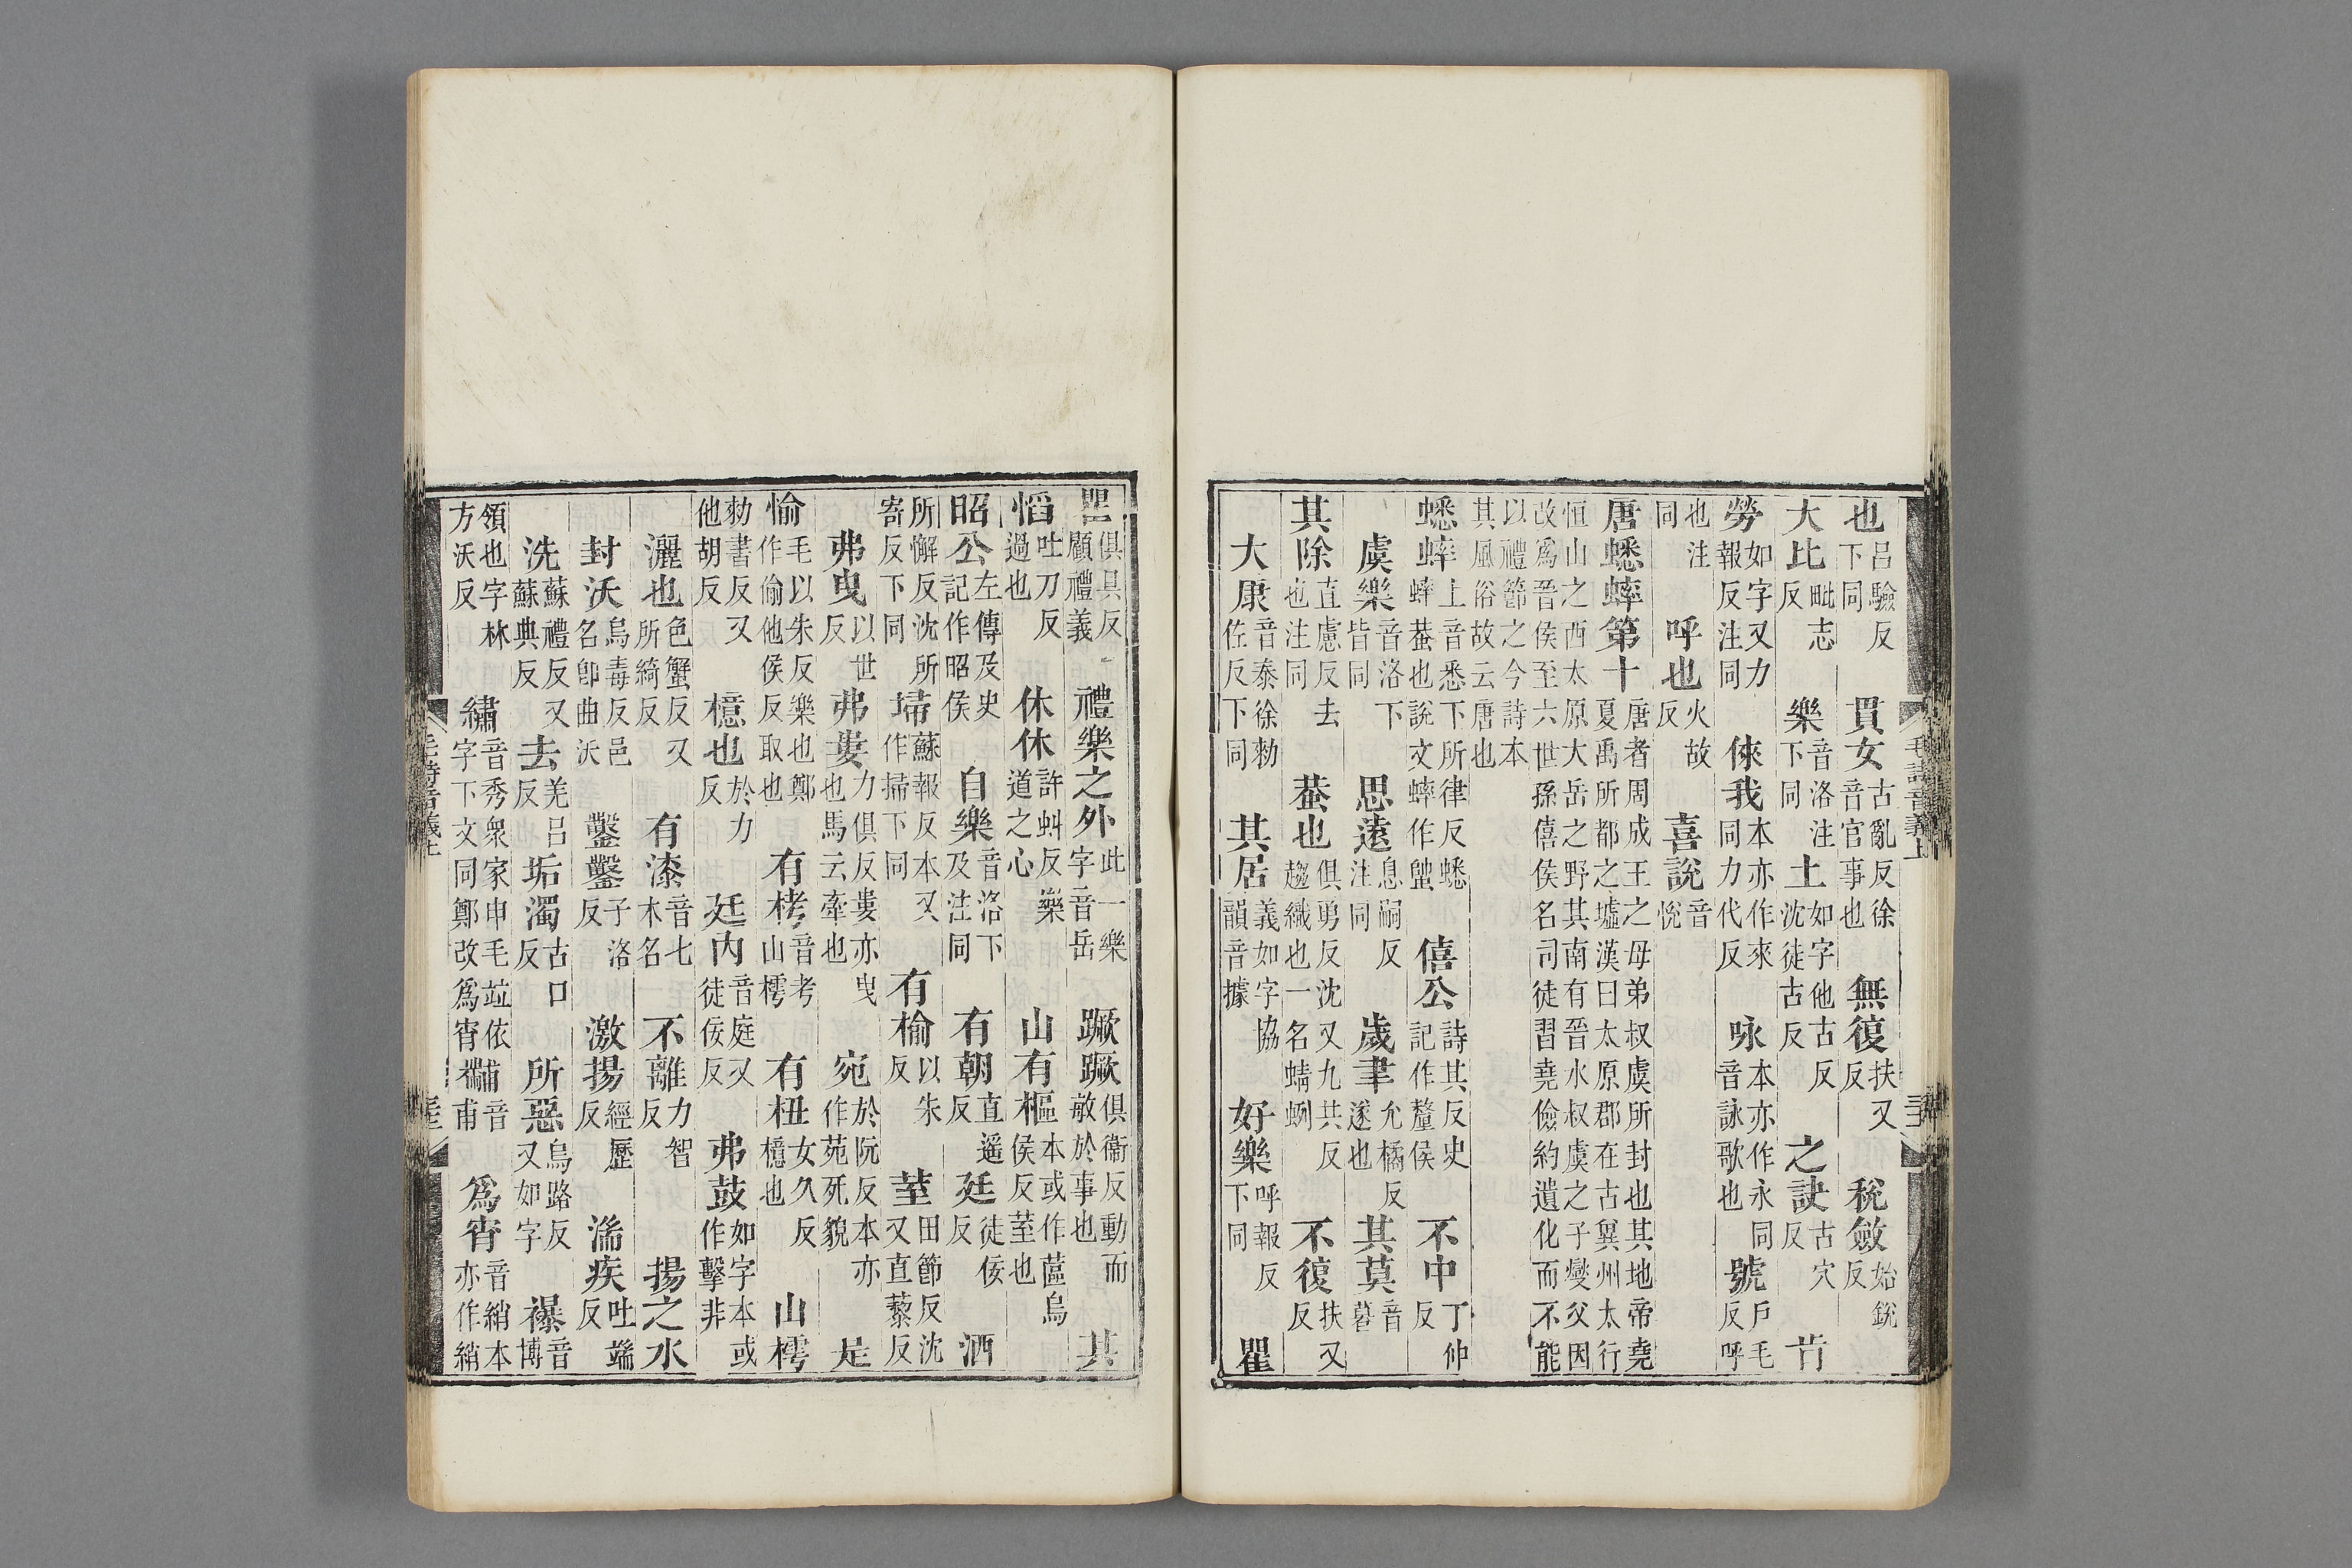 也呂驗反下同 貫女古亂反徐音官事也 無復扶又反 稅斂始銳反
大比毗志反 樂音洛注下同 土如字他古反沈徒古反 之訣古穴反 节
勞如字又力報反注同 倈我本亦作來同力代反 咏本亦作永同音詠歌也 號戶毛反呼
也注同 呼也火故反 喜說音悅
唐蟋蟀第十唐者周成王之母弟叔虞所封也其地帝堯夏禹所都之墟漢曰太原郡在古兾州太行
恒山之西太原大岳之野其南有晉水叔虞之子燮父因改爲晉侯至六世孫僖侯名司徒習堯儉約遺化而不能
以禮節之今詩本其風俗故云唐也
蟋蟀上音悉下所律反蟋蟀蛬也說文蟀作䗐 僖公詩其反史記作釐侯 不中丁仲反
虞樂音洛下皆同 思遠息嗣反注同 歲聿允橘反遂也 其莫音暮
其除直慮反去也注同 蛬也俱勇反沈又九共反趨織也一名蜻蛚 不復扶又反
大康音泰徐勑佐反下同 其居義如字協韻音據 好樂呼報反下同 瞿
毛詩音義上
瞿俱具反顧禮義 禮樂之外此一樂字音岳 蹶蹶俱衞反動而敏於事也 其
慆吐刀反過也 休休許虯反樂道之心 山有樞本或作蓲烏侯反荎也
昭公左傳及史記作昭侯 自樂音洛下及注同 有朝直遥反 廷徒佞反 洒
所懈反沈所寄反下同 埽蘇報反本又作掃下同 有榆以朱反 荎田節反沈又直藜反
弗曳以世反 弗婁力俱反婁亦曳也馬云牽也 宛於阮反本亦作苑死貌 是
愉毛以朱反樂也鄭作偷他侯反取也 有栲音考山樗 有杻女久反檍也 山樗
勑書反又他胡反 檍也於力反 廷內音庭又徒佞反 弗鼓如字本或作擊非
灑也色蟹反又所綺反 有漆音七木名 不離力智反 揚之水
封沃烏毒反邑名卽曲沃 鑿鑿子洛反 激揚經歷反 湍疾吐端反
洗蘇禮反又蘇典反 去羌呂反 垢濁古口反 所惡烏路反又如字 襮音博
領也字林方沃反 繡音秀衆家申毛竝依字下文同鄭改爲宵 黼音甫 爲宵音綃本亦作綃
毛詩音義上